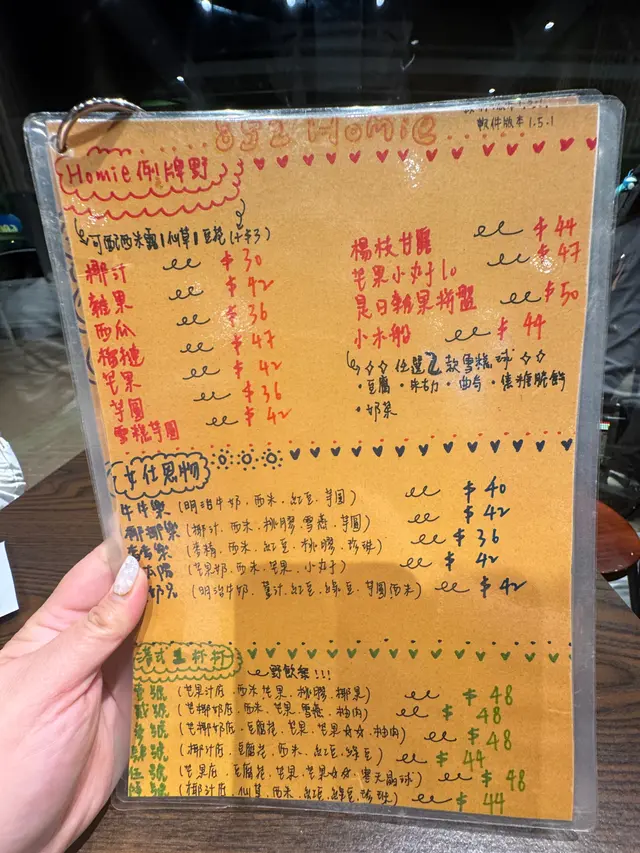 軟件版本 1.5.1
852 Homie
Homie 例牌野
可配西米露/仙草/豆花(+$3)
椰汁 $30
雜果 $42
西瓜 $36
榴槤 $47
芒果 $42
芋圓 $36
雪糕芋圓 $42
楊枝甘露 $44
芒果小丸子 $47
是日雜果拼盤 $50
小木船 $44
任選2款雪糕球
·豆腐·朱古力·曲奇·焦糖脆餅
·奶茶
女仕恩物
牛牛樂 (明治牛奶、西米、紅豆、芋圓) $40
椰椰樂 (椰汁、西米、桃膠、雪燕、芋圓) $42
(西米、紅豆、桃膠、珍珠) $36
(芒果奶、西米、芒果、小丸子) $42
(明治牛奶、薑汁、紅豆、綠豆、芋圓西米) $42
港式 杯杯
野飲架!!!
壹號 (芒果汁底、西米、芒果、桃膠、椰果) $48
貳號 (芒椰奶底、西米、芒果、雪燕、柚肉) $48
叁號 (芒椰奶底、豆腐花、芒果、芒果☆☆、柚肉) $48
肆號 (椰汁底、豆腐花、西米、紅豆、綠豆) $44
伍號 (芒果底、豆腐花、芒果、芒果☆☆、寒天晶球) $48
陸號 (椰汁底、仙草、西米、紅豆、綠豆、珍珠) $44